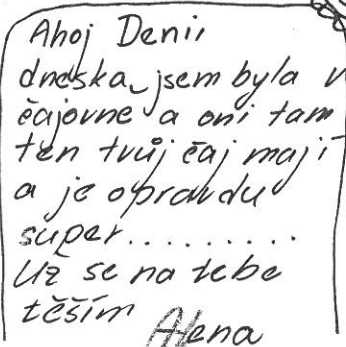 Ahoj Deni,
dneska jsem byla v
čajovne a oni tam
ten tvůj čaj mají
a je opravdu
super..........
Už se na tebe
těším Alena